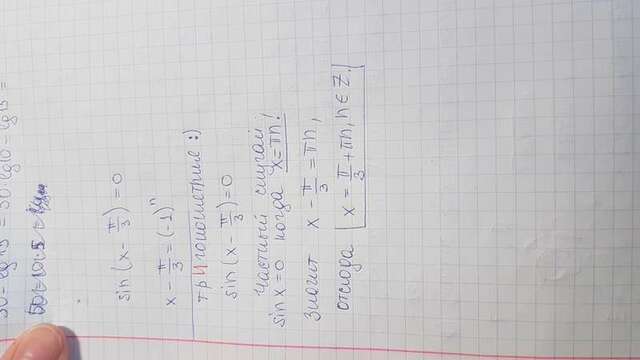 50 - lg 15 = 50·lg10 - lg 15 =
50 = 10·5 =
sin (x - π/3) = 0
x - π/3 = (-1)ⁿ
тригонометрия :)
sin (x - π/3) = 0
частный случай
sin x = 0 когда x = πn!
значит x - π/3 = πn,
отсюда x = π/3 + πn, n ∈ Z.